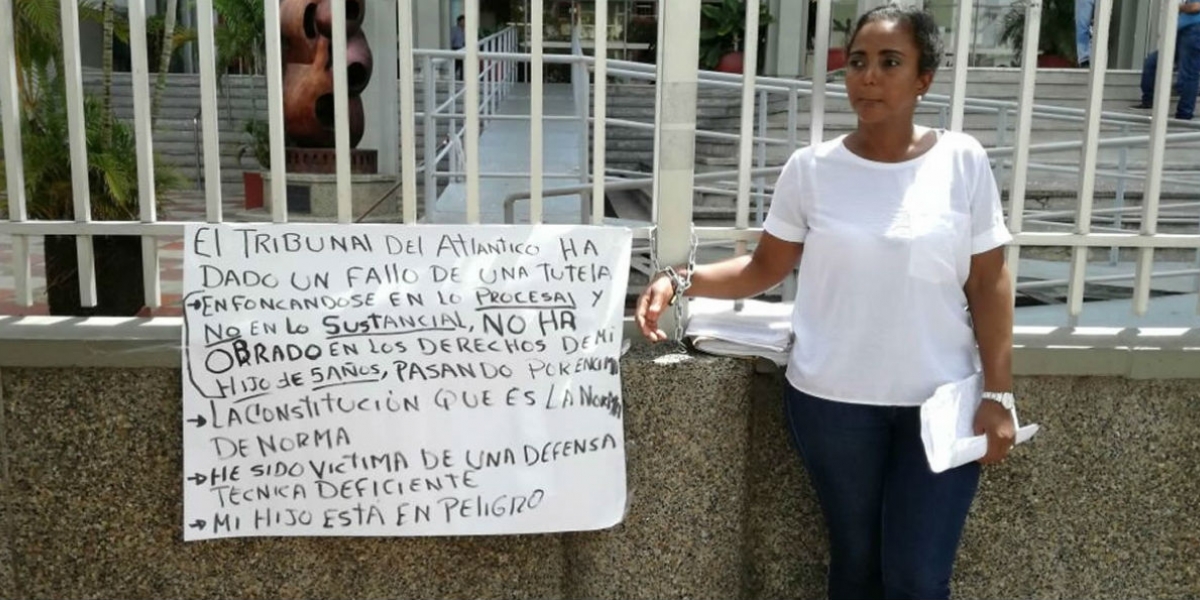 El TRIBUNAl DEl AtlANTICO HA
DADO UN FAllO DE UNA TUTElA
→ENFONCANDOSE EN lO PROCESAl Y
NO EN lO SUSTANCIAL, NO HA
OBRADO EN LOS DERECHOS DE MI
HIJO de 5 AÑOS, PASANDO POR ENCIMA
→LA CONSTITUCIÓN QUE ES LA NORMA
DE NORMA
→HE SIDO VICTIMA DE UNA DEFENSA
TECNICA DEFICIENTE
→MI HIJO ESTÁ EN PElIGRO